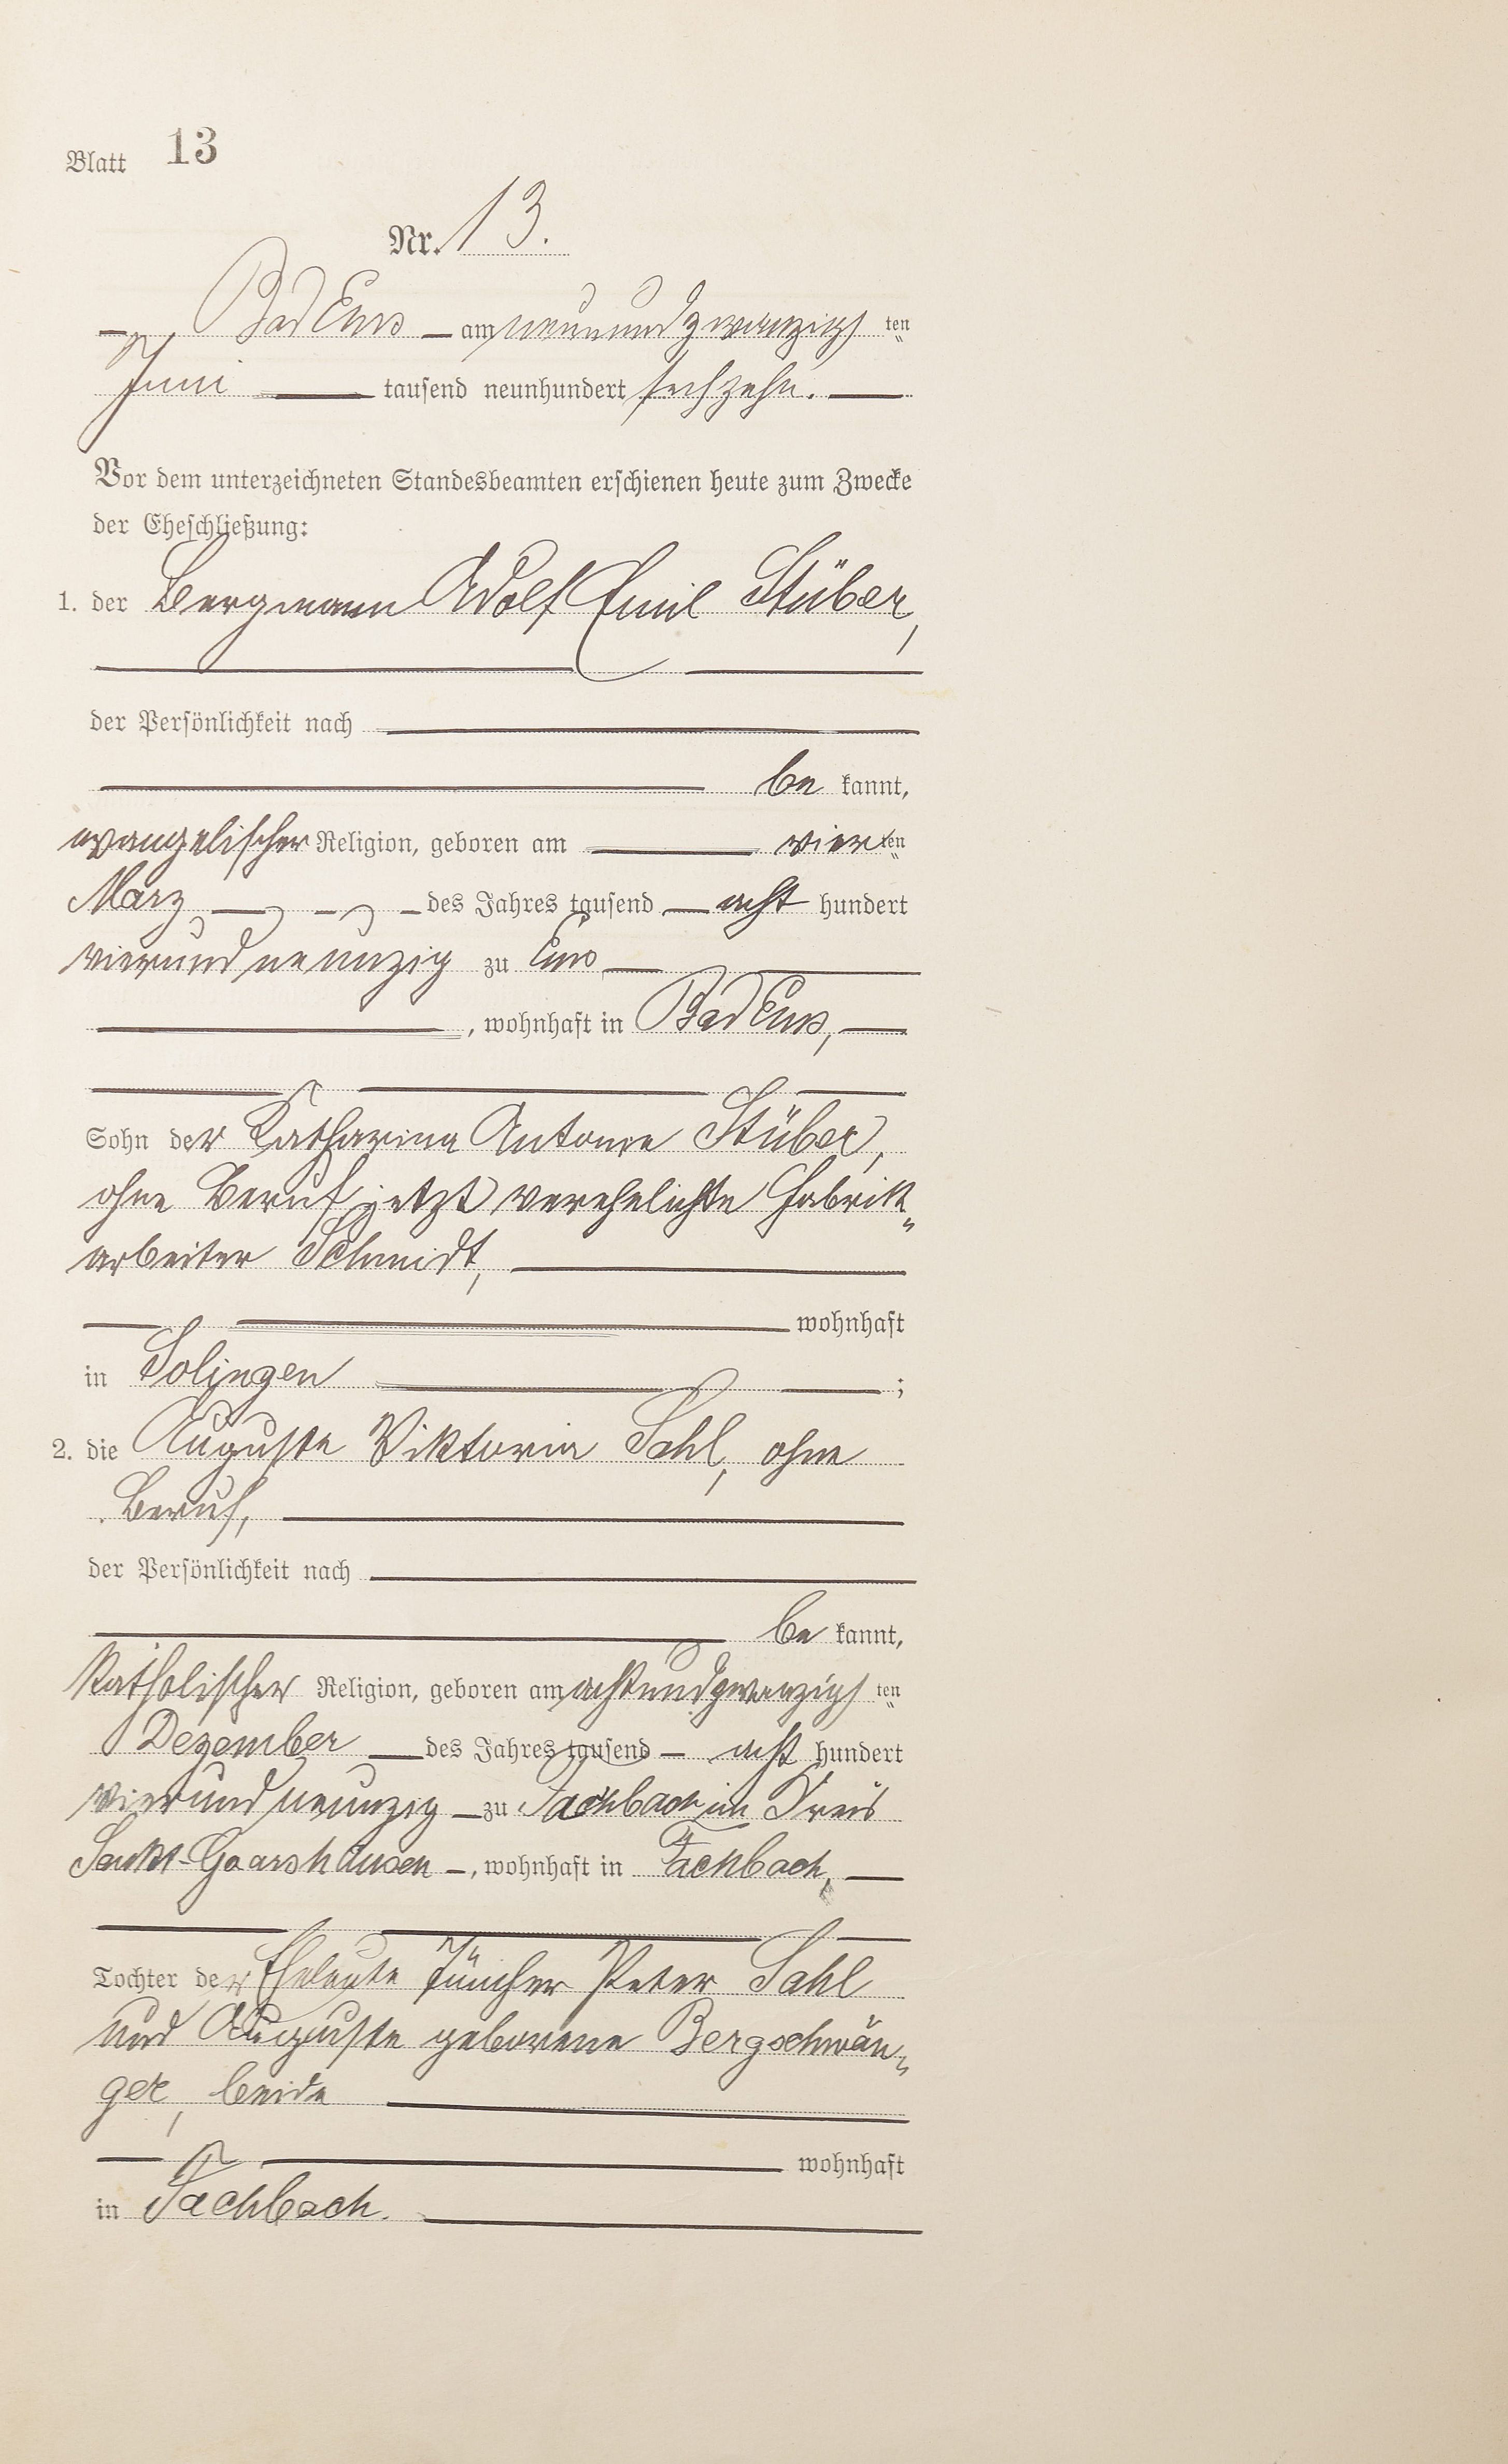 Blatt 13
Nr. 13.
Bad Ems am neunundzwanzigsten
Juni tausend neunhundert sechzehn.
Vor dem unterzeichneten Standesbeamten erschienen heute zum Zwecke
der Eheschließung:
1. der Bergmann Adolf Emil Stüber,
der Persönlichkeit nach
be kannt,
evangelischer Religion, geboren am vierten
März des Jahres tausend acht hundert
vierundneunzig zu Ems
, wohnhaft in Bad Ems,
Sohn der Katharina Antonie Stüber,
ohne Beruf, jetzt verehelichte Fabrik„
arbeiter Schmidt,
wohnhaft
in Solingen ;
2. die Auguste Viktoria Sahl, ohne
Beruf,
der Persönlichkeit nach
be kannt,
katholischer Religion, geboren am achtundzwanzigsten
Dezember des Jahres tausend acht hundert
vierundneunzig zu Fachbach im Kreis
Sankt-Goarshausen, wohnhaft in Fachbach,
Tochter der Eheleute Tüncher Peter Sahl
und Auguste geborene Bergschwän„
ger, beide
wohnhaft
in Fachbach.